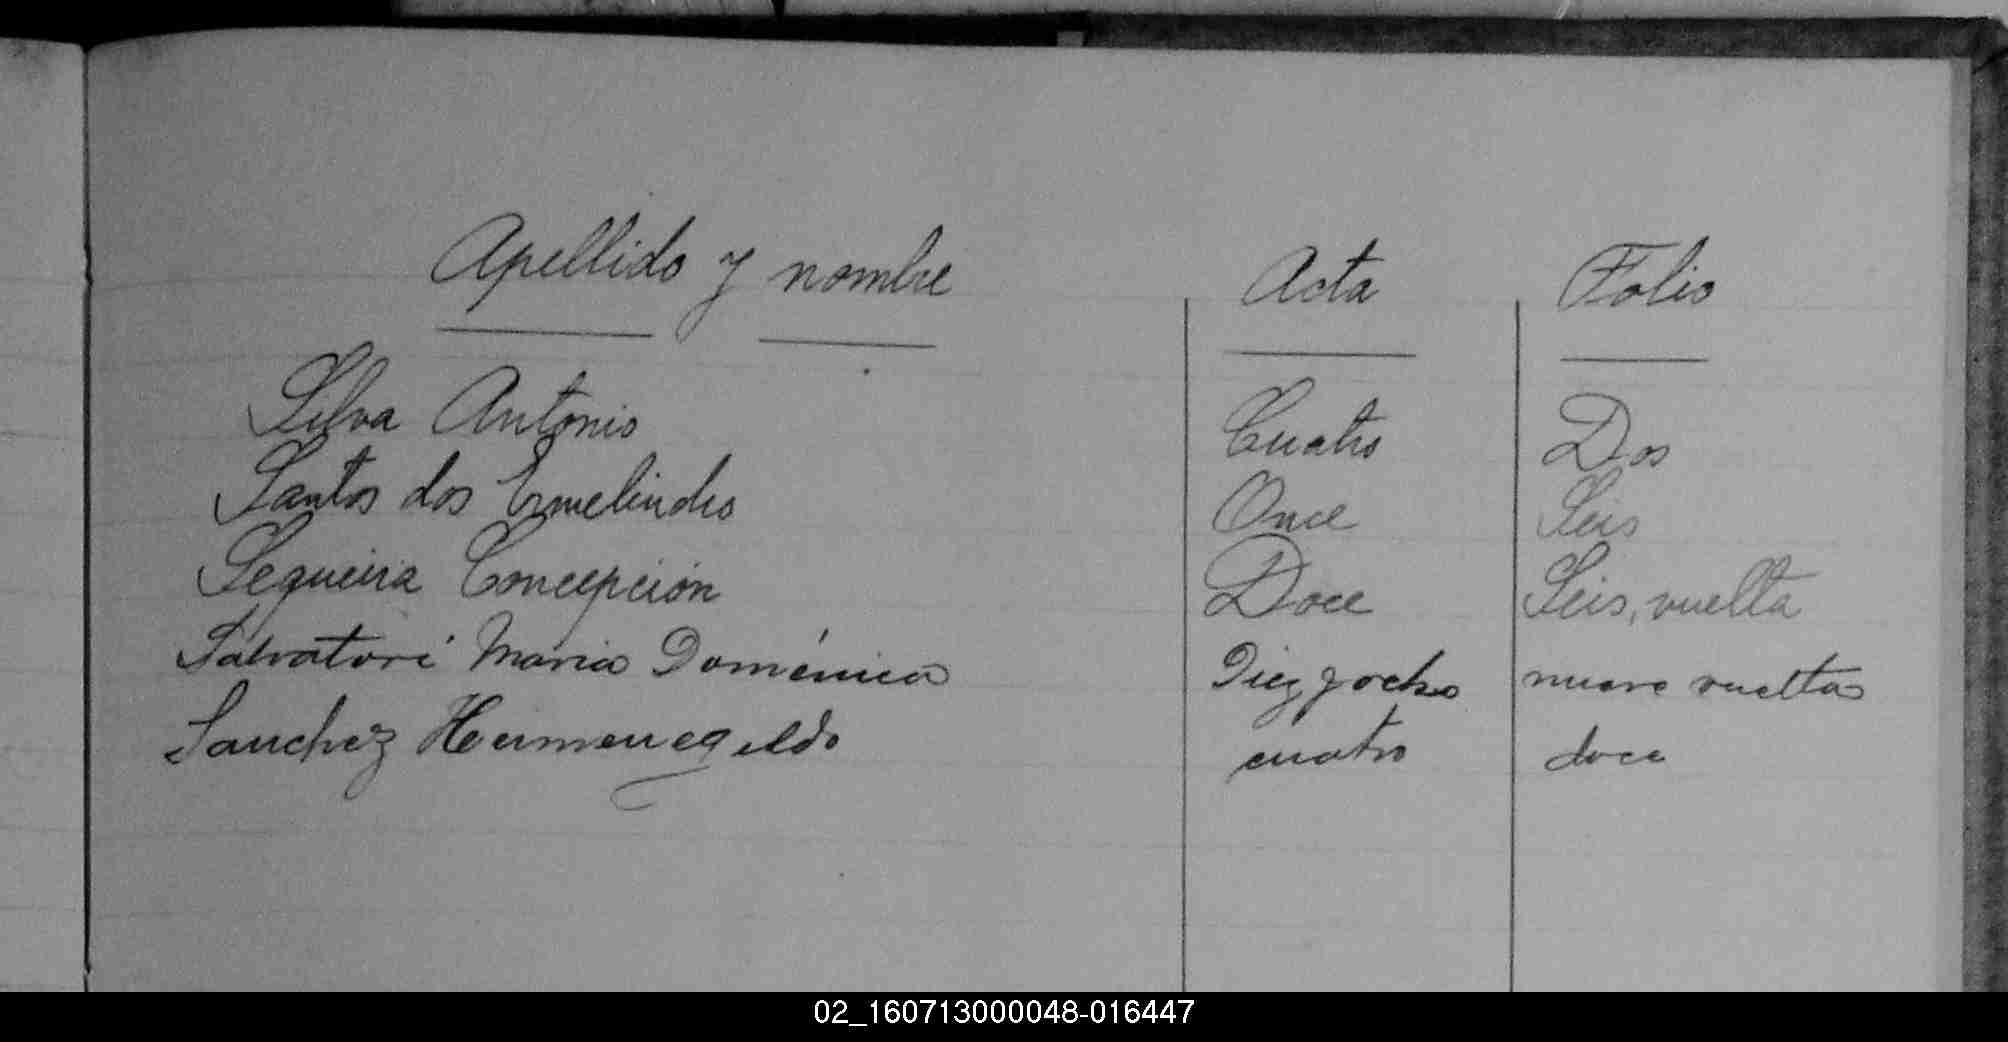 Apellido y nombre Acta Folio
Silva Antonio Cuatro Dos
Santos dos Ermelindro Once Seis
Sequeira Concepción Doce Seis, vuelta
Salvatori Maria Doménica Diez y ocho nueve vuelta
Sanchez Hermenegildo cuatro doce
02_160713000048-016447